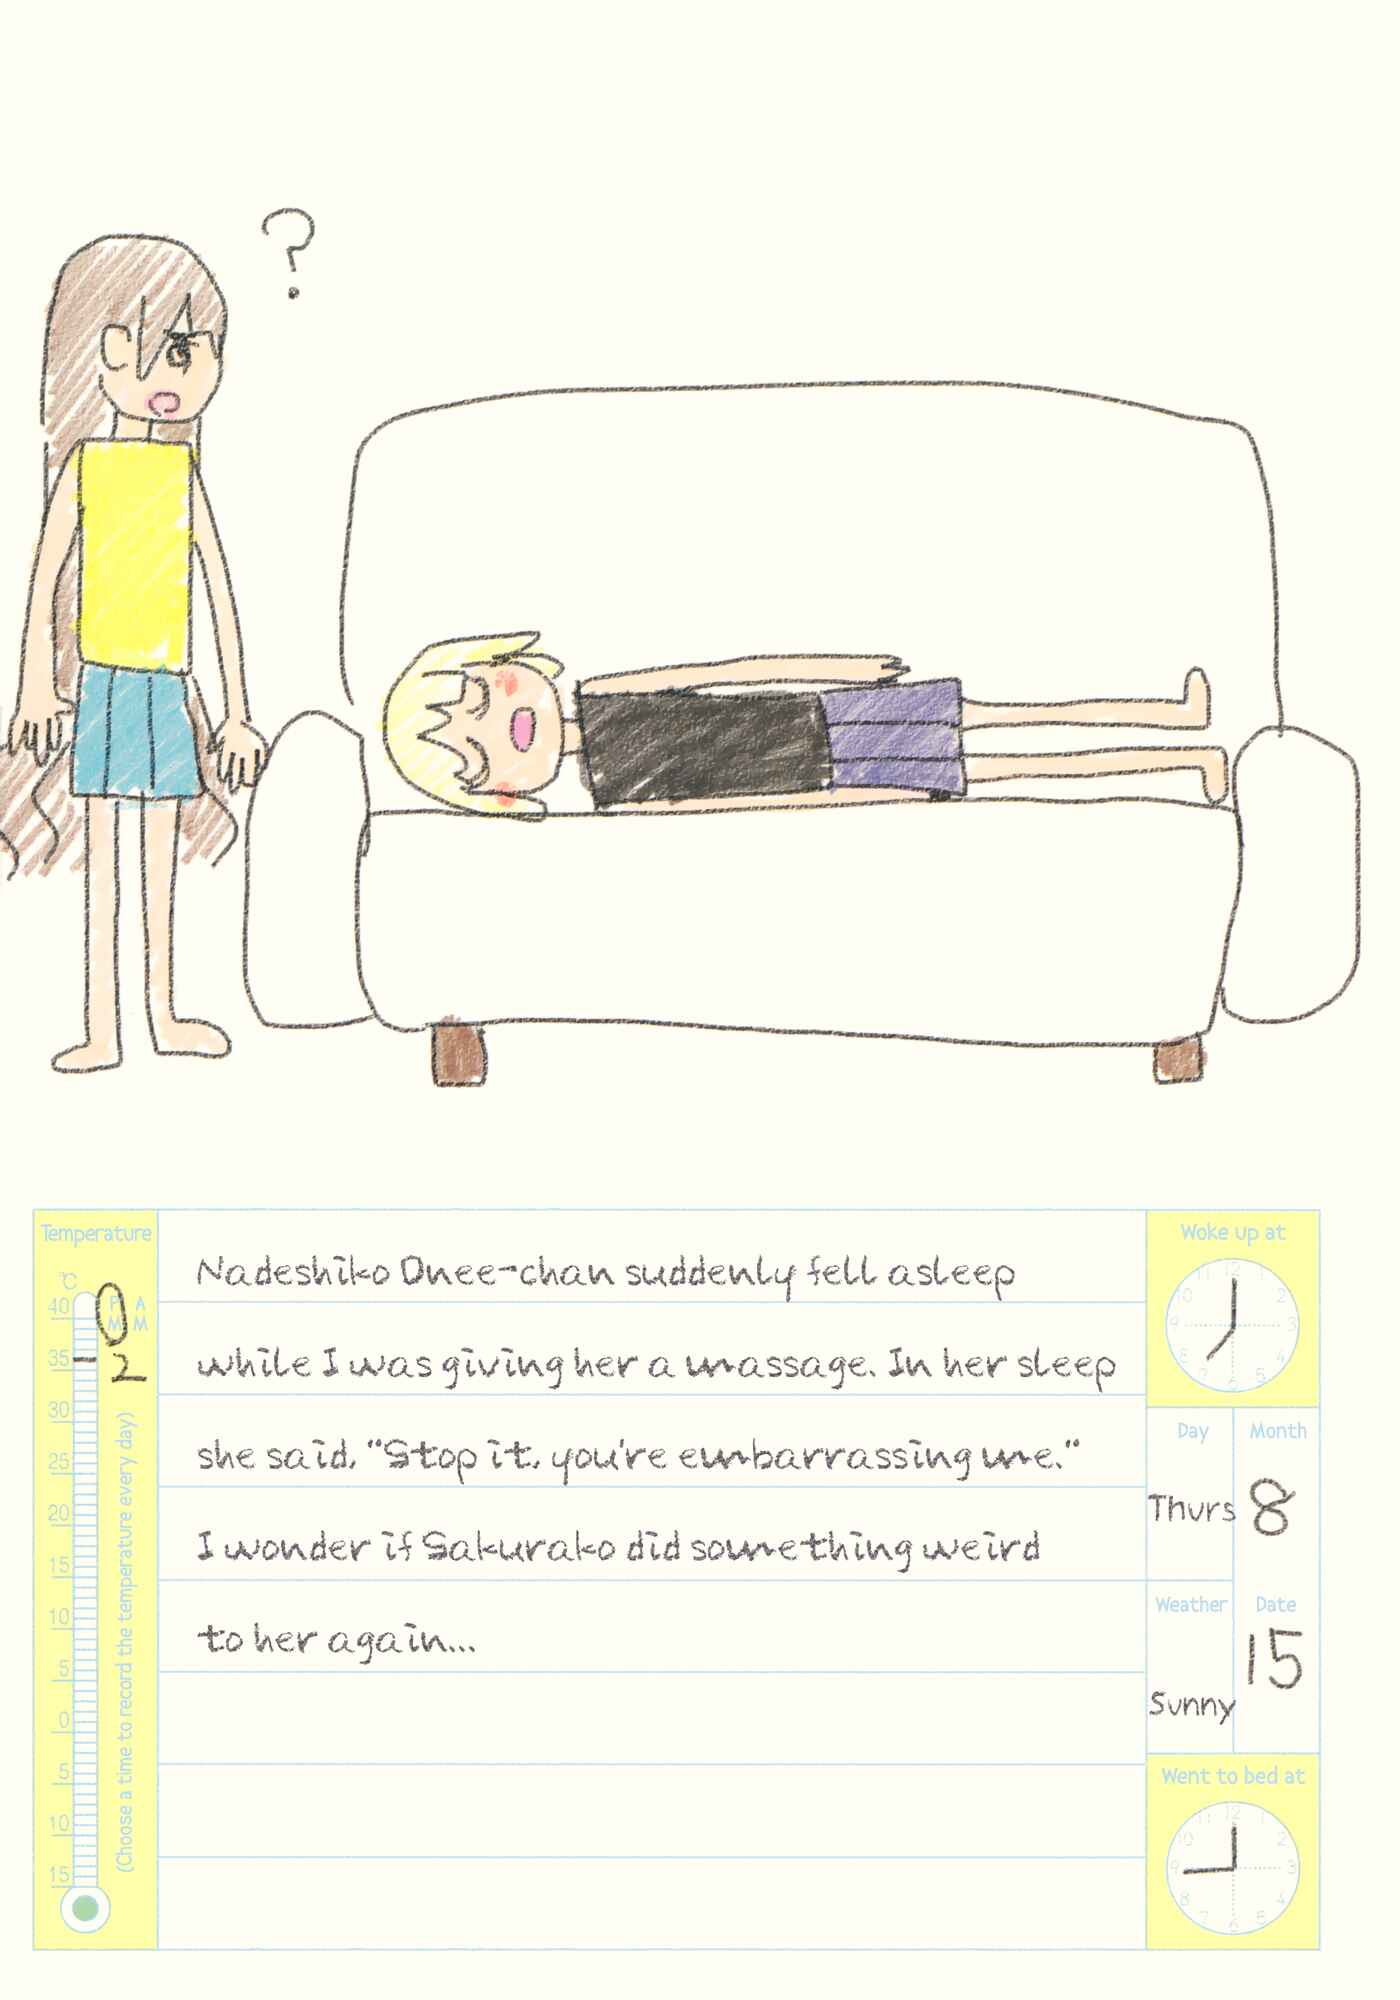 ?
Temperature
°C
40
P M
A M
35
2
30
25
20
15
10
5
0
5
10
15
(Choose a time to record the temperature every day)
Nadeshiko Onee-chan suddenly fell asleep
while I was giving her a massage. In her sleep
she said, "Stop it, you're embarrassing me."
I wonder if Sakurako did something weird
to her again...
Woke up at
12
1
2
3
4
5
6
7
8
9
10
11
Day
Month
Thurs
8
Weather
Date
Sunny
15
Went to bed at
12
1
2
3
4
5
6
7
8
9
10
11